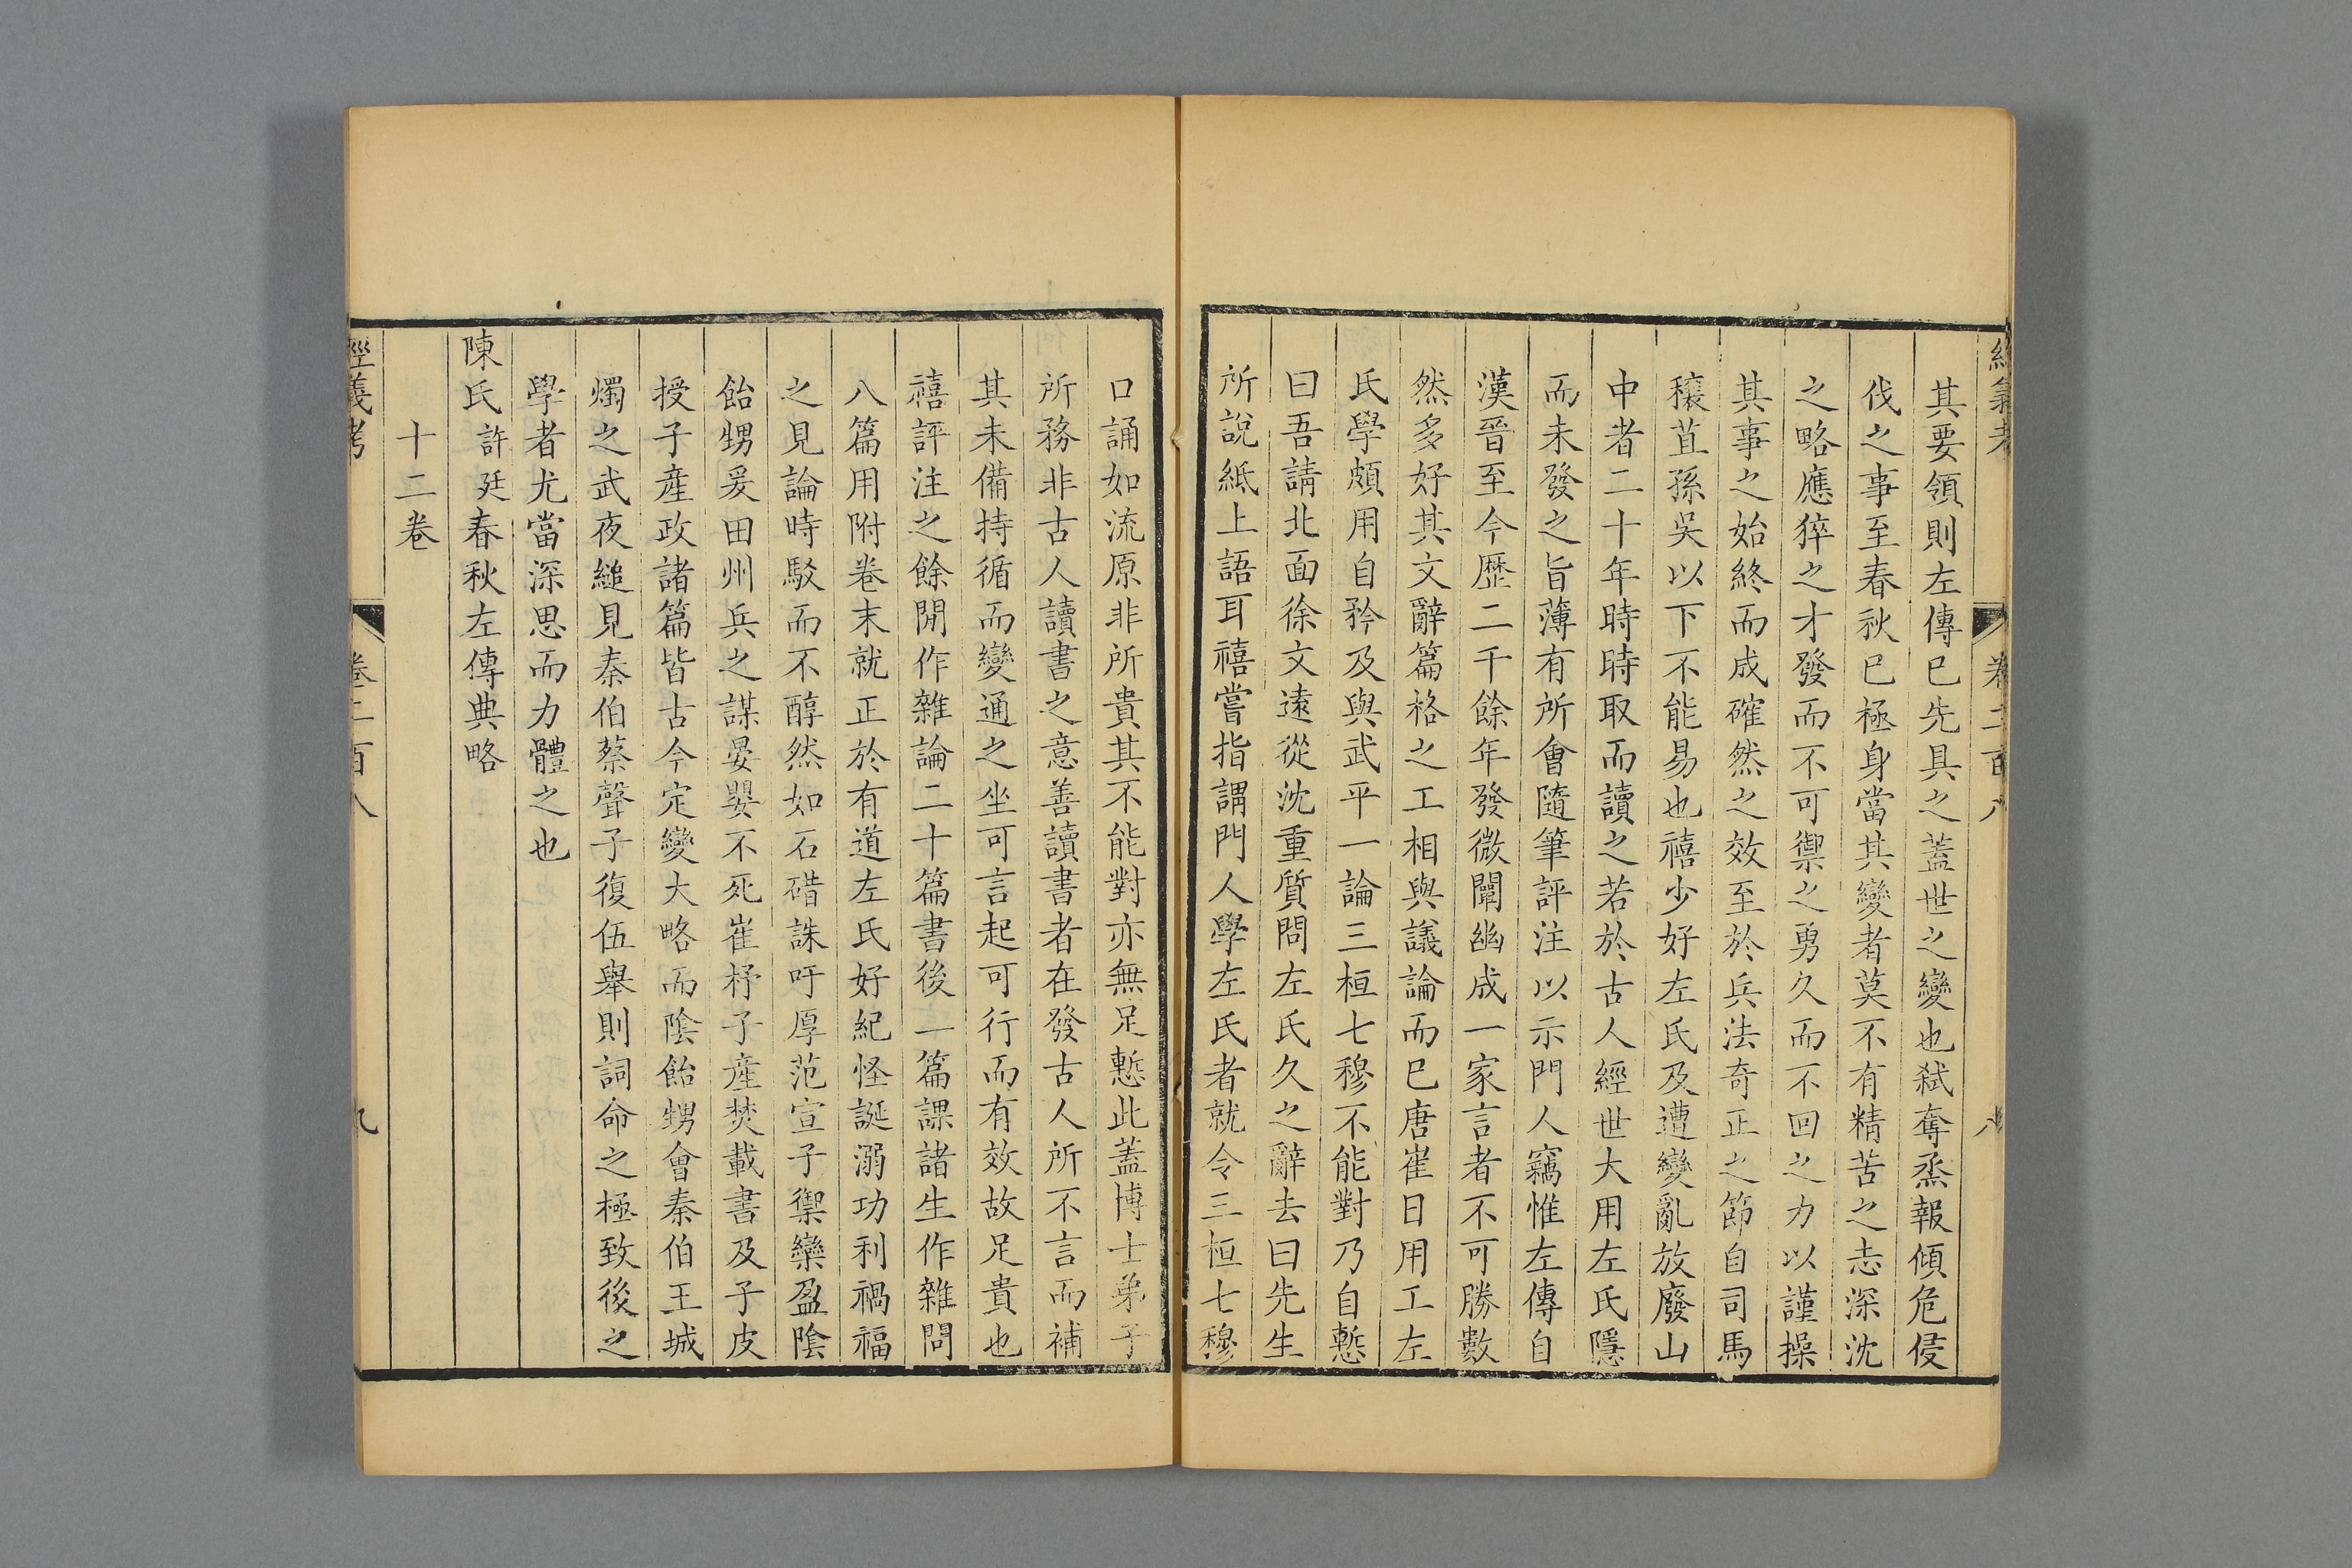 經義考 卷二百八 八
其要領則左傳已先具之蓋世之變也弒奪烝報傾危侵
伐之事至春秋已極身當其變者莫不有精苦之志深沈
之略應猝之才發而不可禦之勇久而不回之力以謹操
其事之始終而成確然之效至於兵法奇正之節自司馬
穰苴孫吳以下不能易也禧少好左氏及遭變亂放廢山
中者二十年時時取而讀之若於古人經世大用左氏隱
而未發之旨薄有所會隨筆評注以示門人竊惟左傳自
漢晉至今歷二千餘年發微闡幽成一家言者不可勝數
然多好其文辭篇格之工相與議論而已唐崔日用工左
氏學頗用自矜及與武平一論三桓七穆不能對乃自慙
曰吾請北面徐文遠從沈重質問左氏久之辭去曰先生
所說紙上語耳禧嘗指謂門人學左氏者就令三桓七穆
口誦如流原非所貴其不能對亦無足慙此蓋博士弟子
所務非古人讀書之意善讀書者在發古人所不言而補
其未備持循而變通之坐可言起可行而有效故足貴也
禧評注之餘閒作雜論二十篇書後一篇課諸生作雜問
八篇用附卷末就正於有道左氏好紀怪誕溺功利禍福
之見論時駁而不醇然如石碏誅吁厚范宣子禦欒盈陰
飴甥爰田州兵之謀晏嬰不死崔杼子產焚載書及子皮
授子產政諸篇皆古今定變大略而陰飴甥會秦伯王城
燭之武夜縋見秦伯蔡聲子復伍舉則詞命之極致後之
學者尤當深思而力體之也
陳氏許廷春秋左傳典略
十二卷
經義考 卷二百八 九